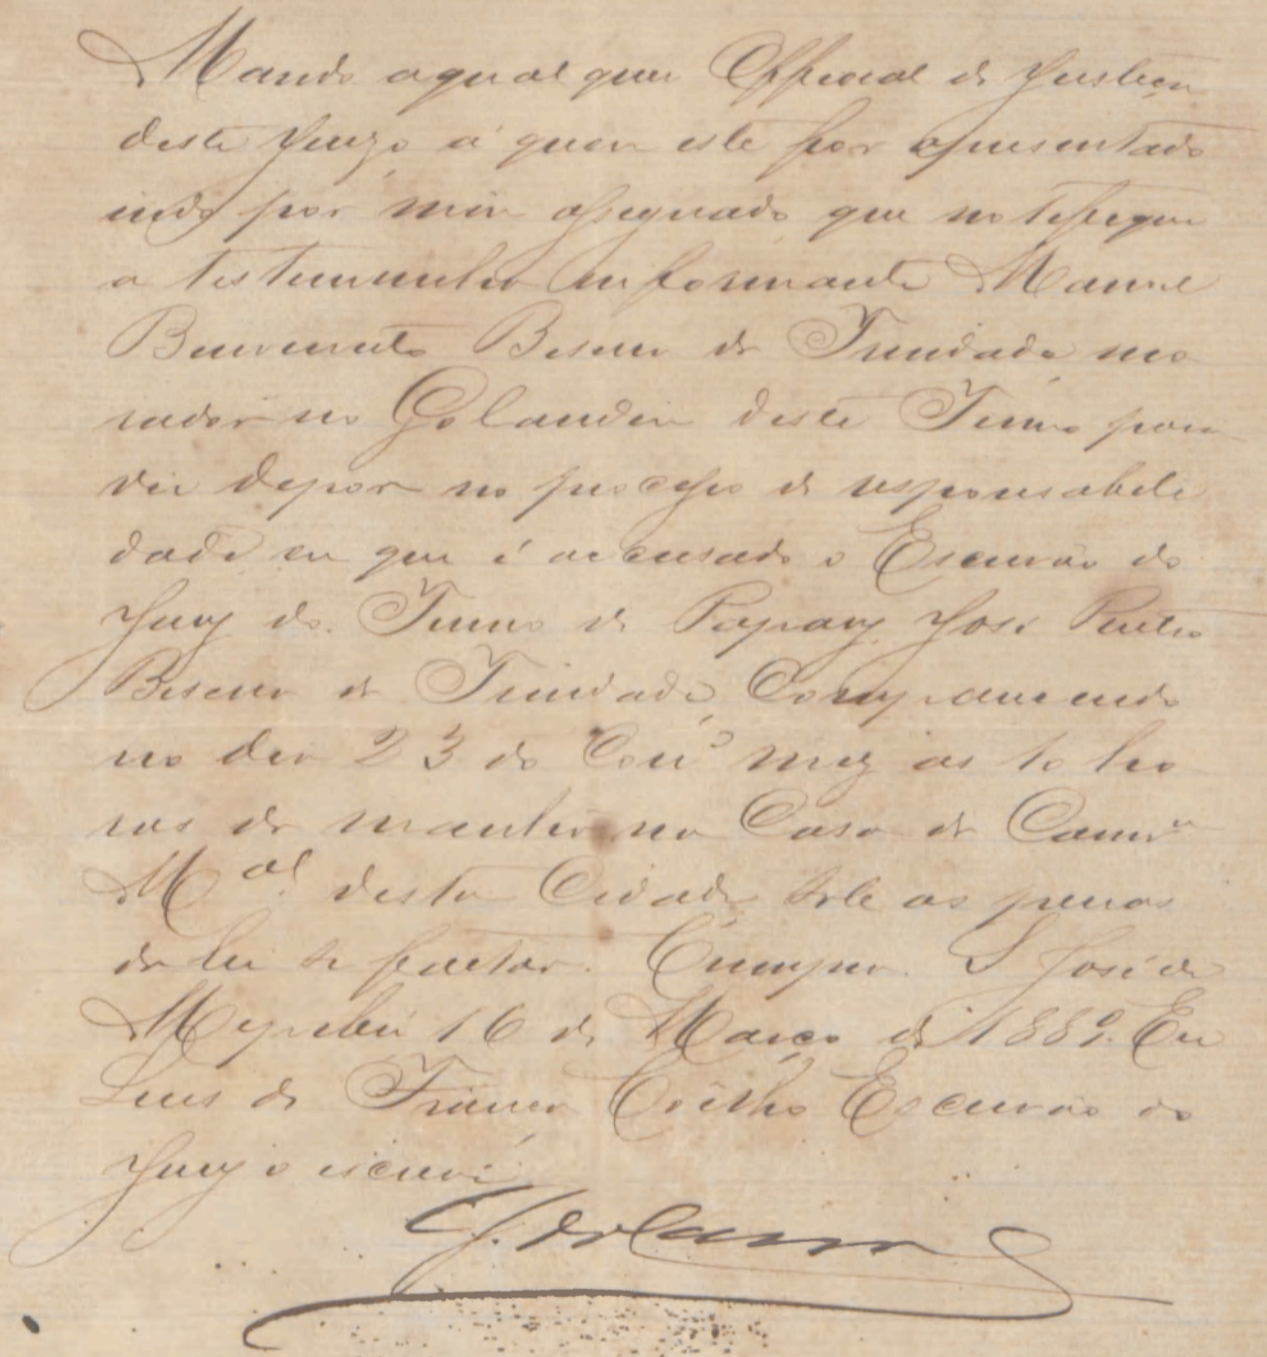 Mando aqualquer Official de Justiça
deste Juizo á quem este for apresentado
indo por mim assignado que notefique
a testemunha informante Manoel
Benvenuto Beserra da Trindade, mo
rador no Golandin deste Termo para
vir depor no processo de responsabele
dade em que é accusado o Escrivão do
Jury do Termo de Papary José
Beserra da Trindade, Comparecendo
no dia 23 do Corr.e mez as 10 ho
ras da manhã na Casa da Camr.a
M.al desta Cidade sob as penas
da lei se faltar. Cumpra. S José de
Mepibú 16 de Março de 1889. Eu
Luis de França Coelho Escrivão do
Jury o escrevi